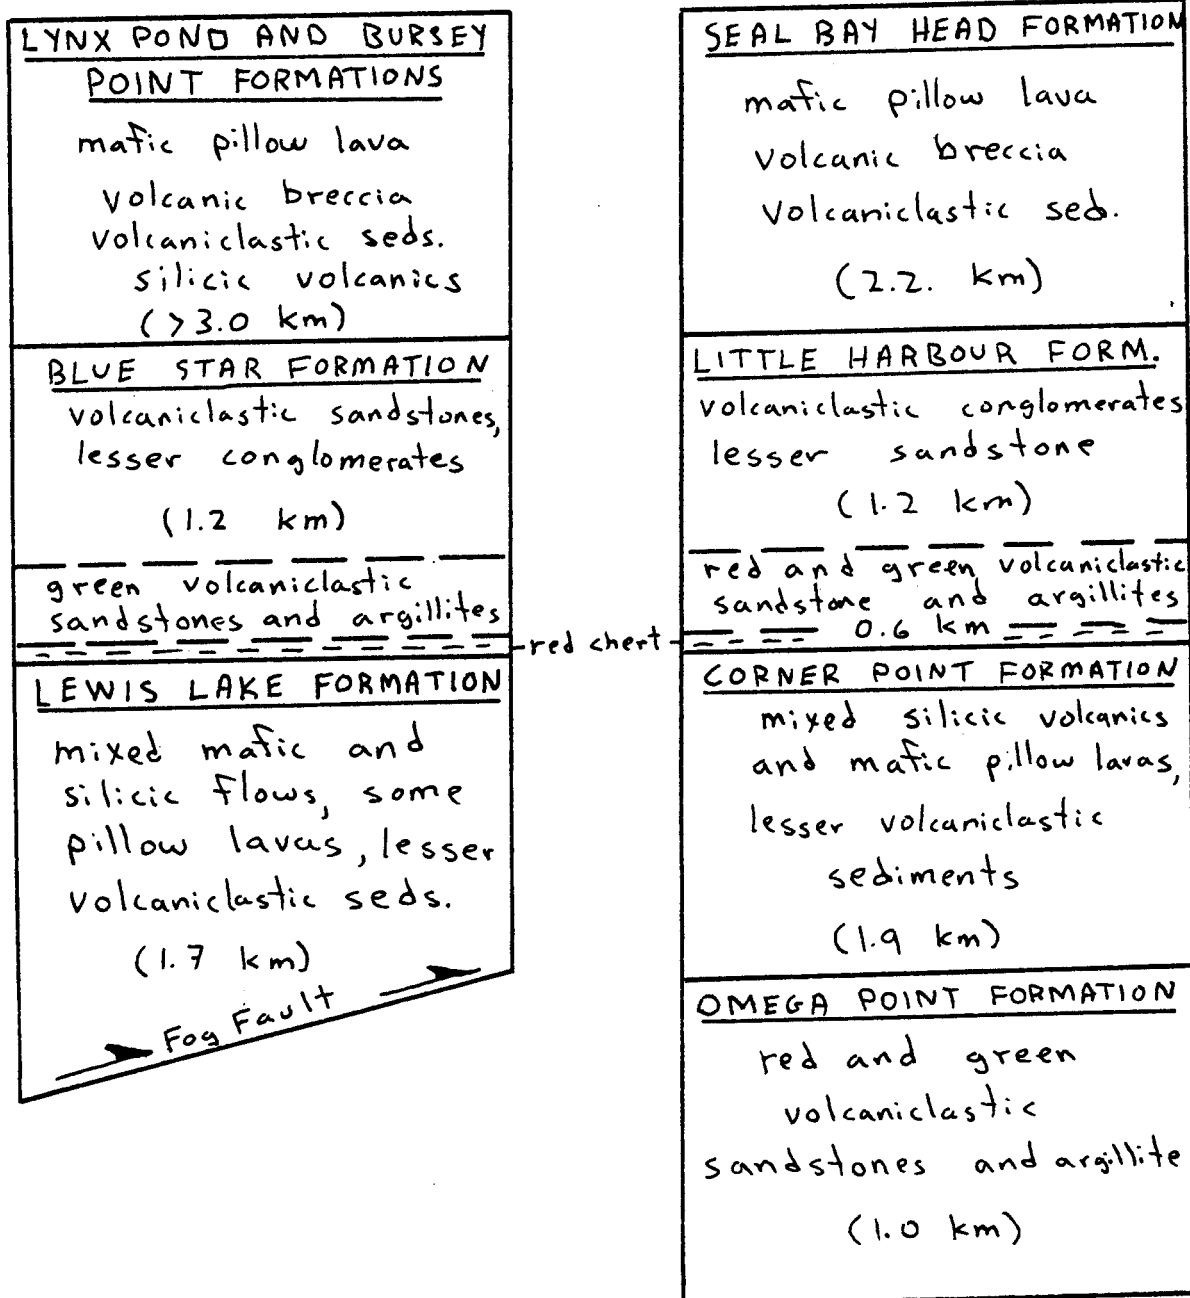 LYNX POND AND BURSEY
POINT FORMATIONS
mafic pillow lava
volcanic breccia
volcaniclastic seds.
silicic volcanics
(>3.0 km)
BLUE STAR FORMATION
volcaniclastic sandstones,
lesser conglomerates
(1.2 km)
green volcaniclastic
sandstones and argillites
LEWIS LAKE FORMATION
mixed mafic and
silicic flows, some
pillow lavas, lesser
volcaniclastic seds.
(1.7 km)
Fog Fault
red chert
SEAL BAY HEAD FORMATION
mafic pillow lava
volcanic breccia
volcaniclastic sed.
(2.2. km)
LITTLE HARBOUR FORM.
volcaniclastic conglomerates
lesser sandstone
(1.2 km)
red and green volcaniclastic
sandstone and argillites
0.6 km
CORNER POINT FORMATION
mixed silicic volcanics
and mafic pillow lavas,
lesser volcaniclastic
sediments
(1.9 km)
OMEGA POINT FORMATION
red and green
volcaniclastic
sandstones and argillite
(1.0 km)